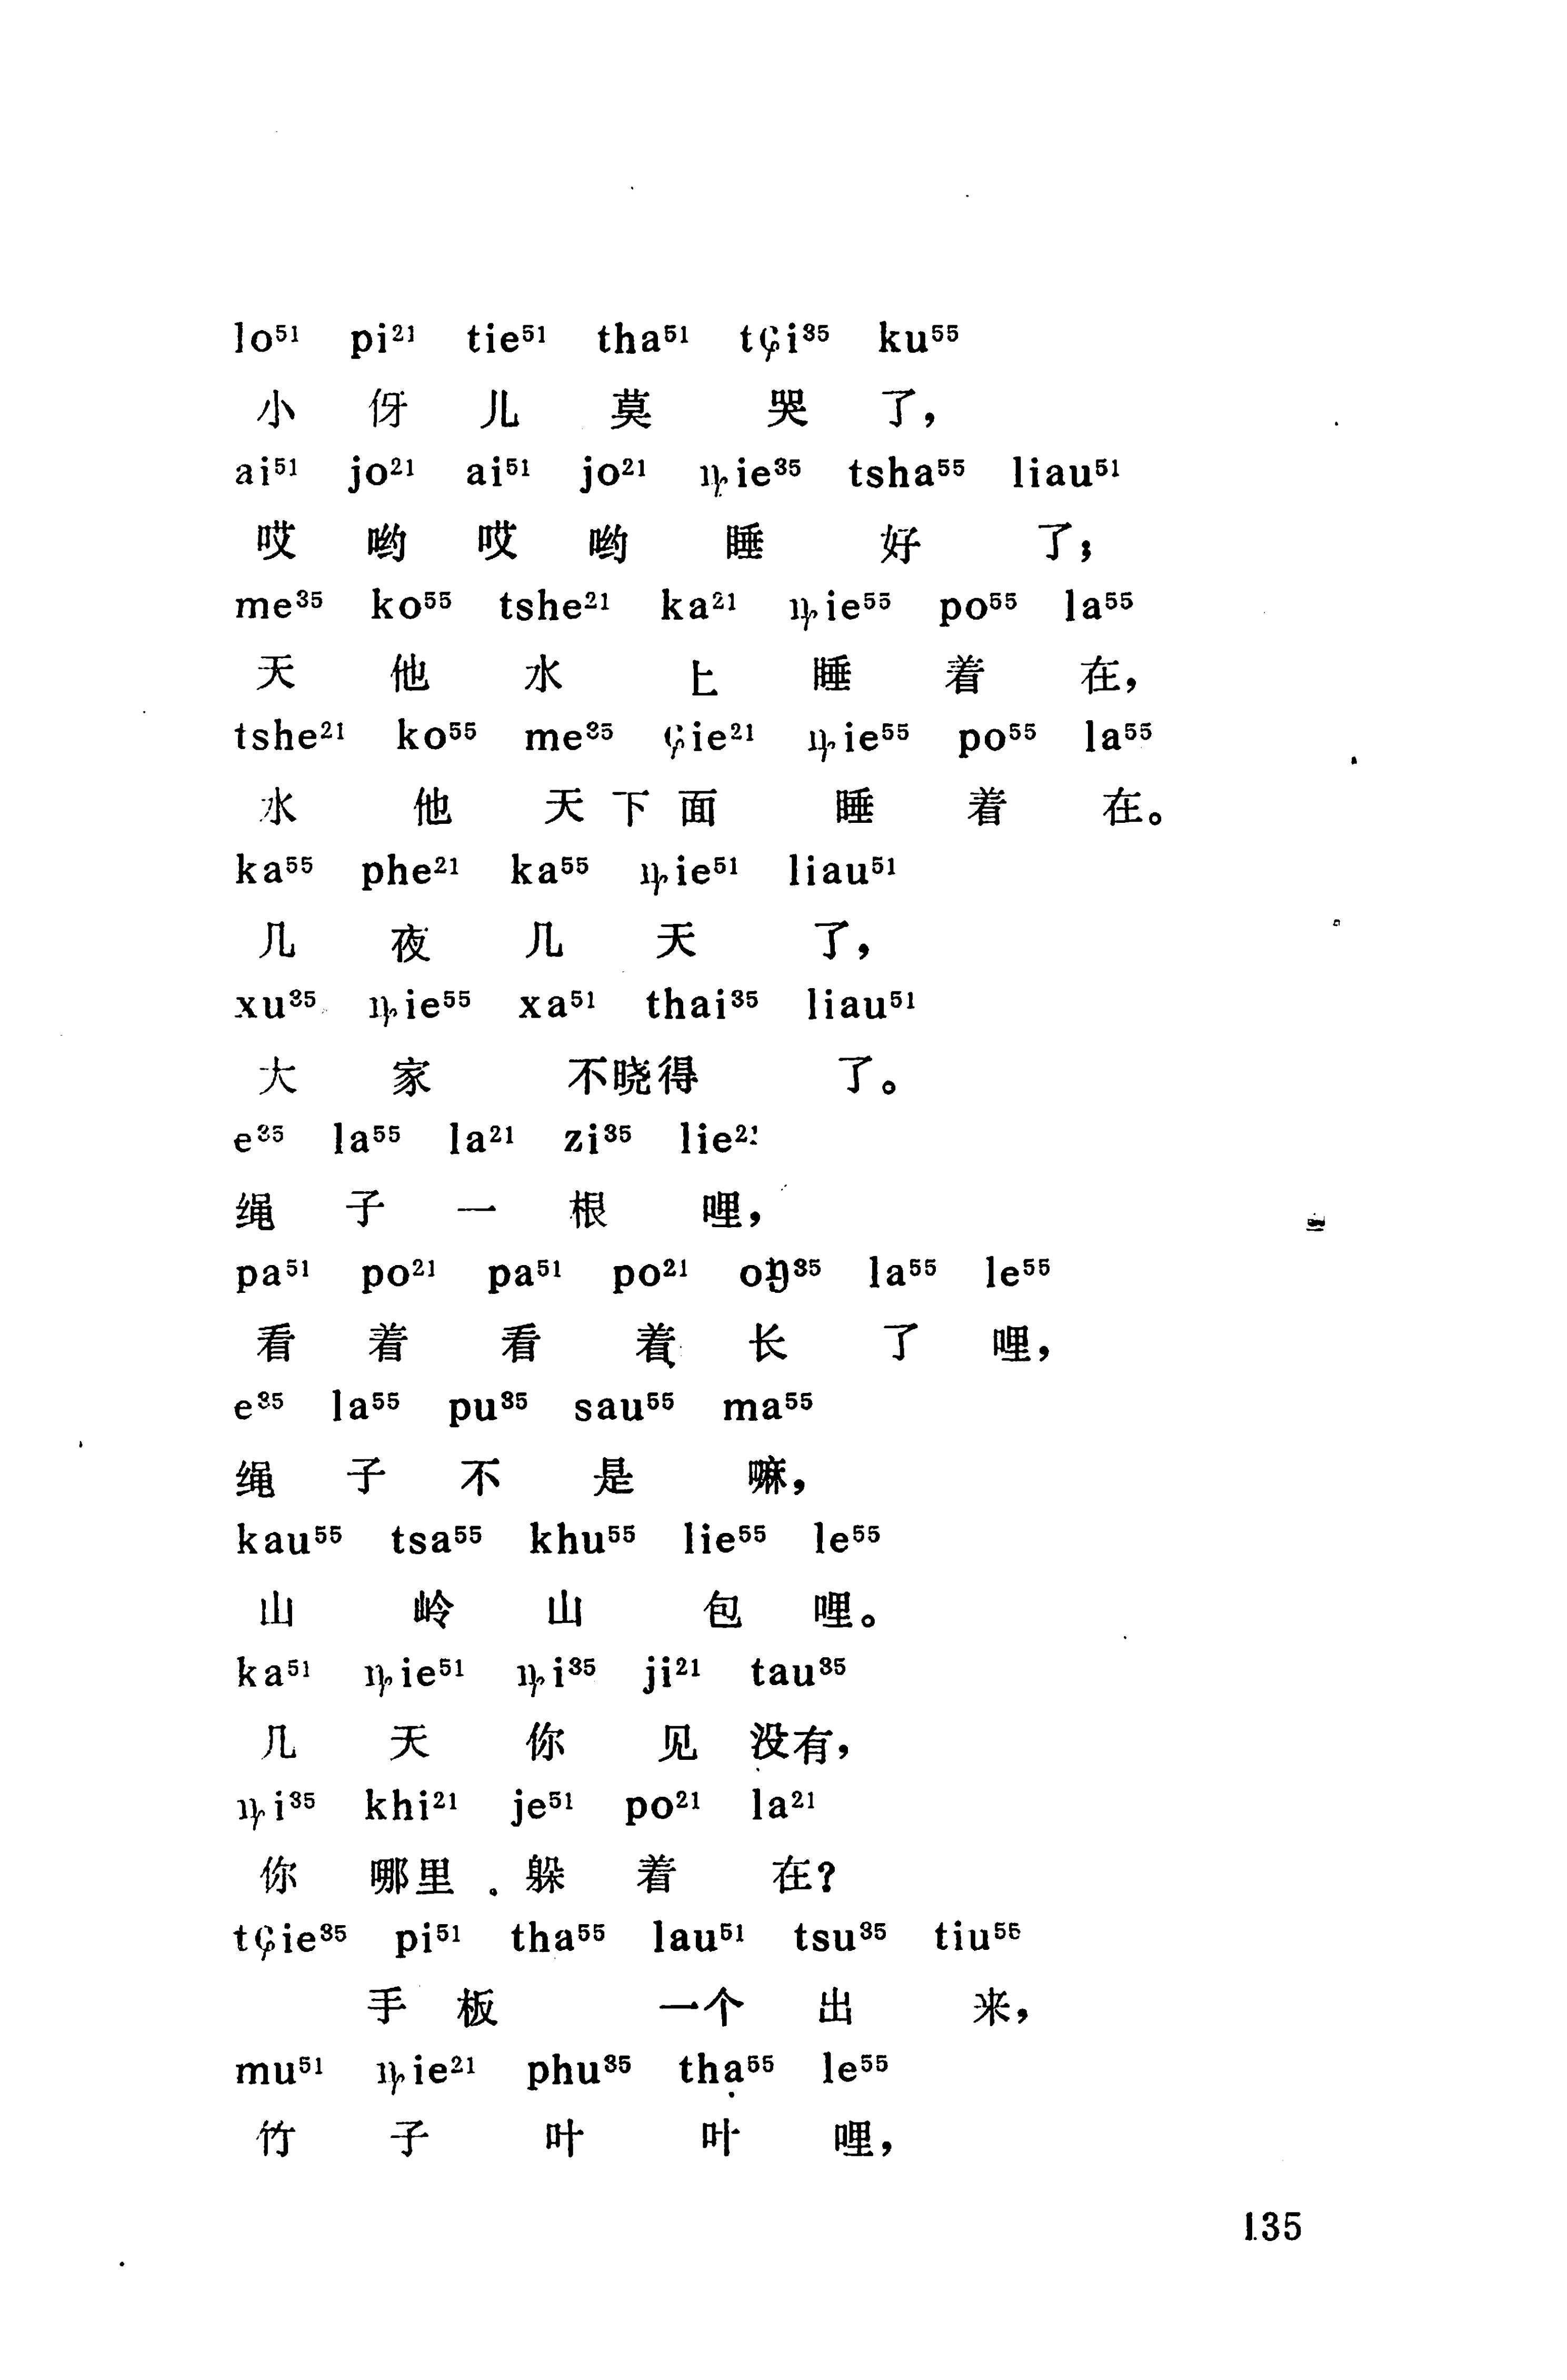 lo⁵¹ pi²¹ tie⁵¹ tha⁵¹ tɕi³⁵ ku⁵⁵
小 伢 儿 莫 哭 了，
ai⁵¹ jo²¹ ai⁵¹ jo²¹ ȵie³⁵ tsha⁵⁵ liau⁵¹
哎 哟 哎 哟 睡 好 了；
me³⁵ ko⁵⁵ tshe²¹ ka²¹ ȵie⁵⁵ po⁵⁵ la⁵⁵
天 他 水 上 睡 着 在，
tshe²¹ ko⁵⁵ me³⁵ ɕie²¹ ȵie⁵⁵ po⁵⁵ la⁵⁵
水 他 天 下 面 睡 着 在。
ka⁵⁵ phe²¹ ka⁵⁵ ȵie⁵¹ liau⁵¹
几 夜 几 天 了，
xu³⁵ ȵie⁵⁵ xa⁵¹ thai³⁵ liau⁵¹
大 家 不晓得 了。
e³⁵ la⁵⁵ la²¹ zi³⁵ lie²¹
绳 子 一 根 哩，
pa⁵¹ po²¹ pa⁵¹ po²¹ oŋ³⁵ la⁵⁵ le⁵⁵
看 着 看 着 长 了 哩，
e³⁵ la⁵⁵ pu³⁵ sau⁵⁵ ma⁵⁵
绳 子 不 是 嘛，
kau⁵⁵ tsa⁵⁵ khu⁵⁵ lie⁵⁵ le⁵⁵
山 岭 山 包 哩。
ka⁵¹ ȵie⁵¹ ȵi³⁵ ji²¹ tau³⁵
几 天 你 见 没有，
ȵi³⁵ khi²¹ je⁵¹ po²¹ la²¹
你 哪里 躲 着 在？
tɕie³⁵ pi⁵¹ tha⁵⁵ lau⁵¹ tsu³⁵ tiu⁵⁵
手 板 一个 出 来，
mu⁵¹ ȵie²¹ phu³⁵ tha⁵⁵ le⁵⁵
竹 子 叶 叶 哩，
135